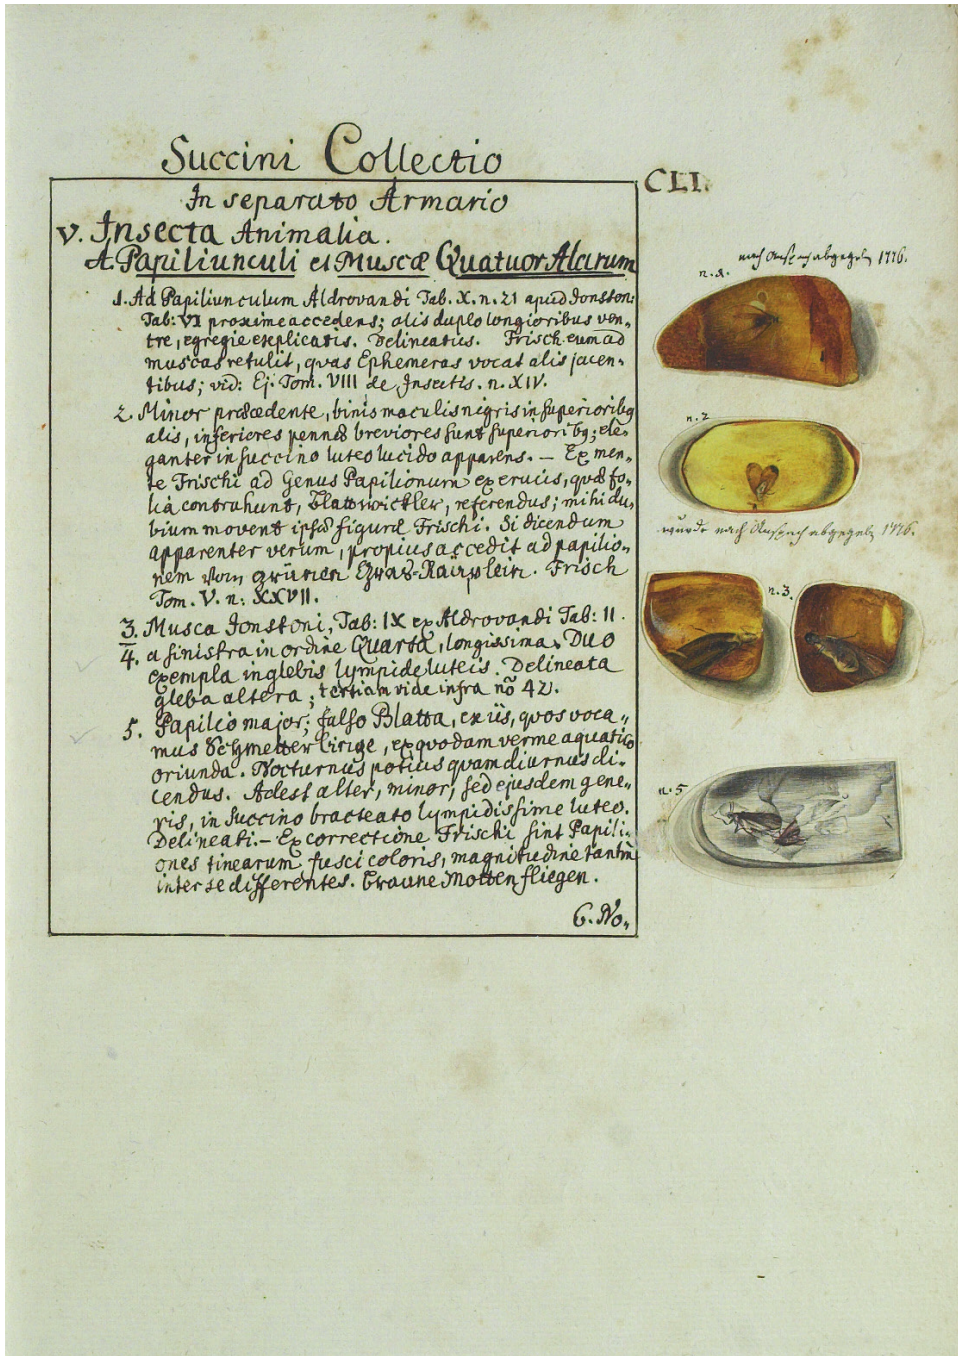 Succini Collectio
CLI.
In separato Armario
V. Insecta Animalia.
A. Papiliunculi et Muscæ Quatuor Alarum
1. Ad Papiliunculum Aldrovandi Tab. X. n. 21 apud Jonston:
Tab: VI proxime accedens; alis duplo longioribus ven-
tre, egregie explicatis. Delineatus. Frisch eum ad
muscas retulit, quas Ephemeras vocat alis jacen-
tibus; vid: Ej. Tom. VIII de Insectis. n. XIV.
2. Minor præcedente, binis maculis nigris in superioribq
alis, inferiores pennæ breviores sunt superioribq; ele-
ganter in succino luteo lucido apparens. - Ex men-
te Frischi ad Genus Papilionum ex erucis, quæ fo-
lia contrahunt, Blattwickler, referendus; mihi du-
bium movent ipsæ figuræ Frischi. Si dicendum
apparenter verum, propius accedit ad papilio-
nem vom grünen Graß-Räuplein. Frisch
Tom. V. n: XXVII.
3. Musca Jonstoni, Tab: IX ex Aldrovandi Tab: II.
4. a sinistra in ordine Quarta, longissima. Duo
exempla in glebis lympide luteis. Delineata
gleba altera; tertiam vide infra nõ 42.
5. Papilio major; falso Blatta, ex iis, quos voca-
mus Schmetterlinge, ex quodam verme aquatico
oriunda. Nocturnus potius quam diurnus di-
cendus. Adest alter, minor, sed ejusdem gene-
ris, in succino bracteato lympidissime luteo.
Delineati. - Ex correctione Frischi sint Papili-
ones tinearum fusci coloris, magnitudine tantum
inter se differentes. braune Mottenfliegen.
6. No-
nach Anspach abgegeben 1776.
n. 1.
n. 2
wurde nach Anspach abgegeben 1776.
n. 3.
n. 5